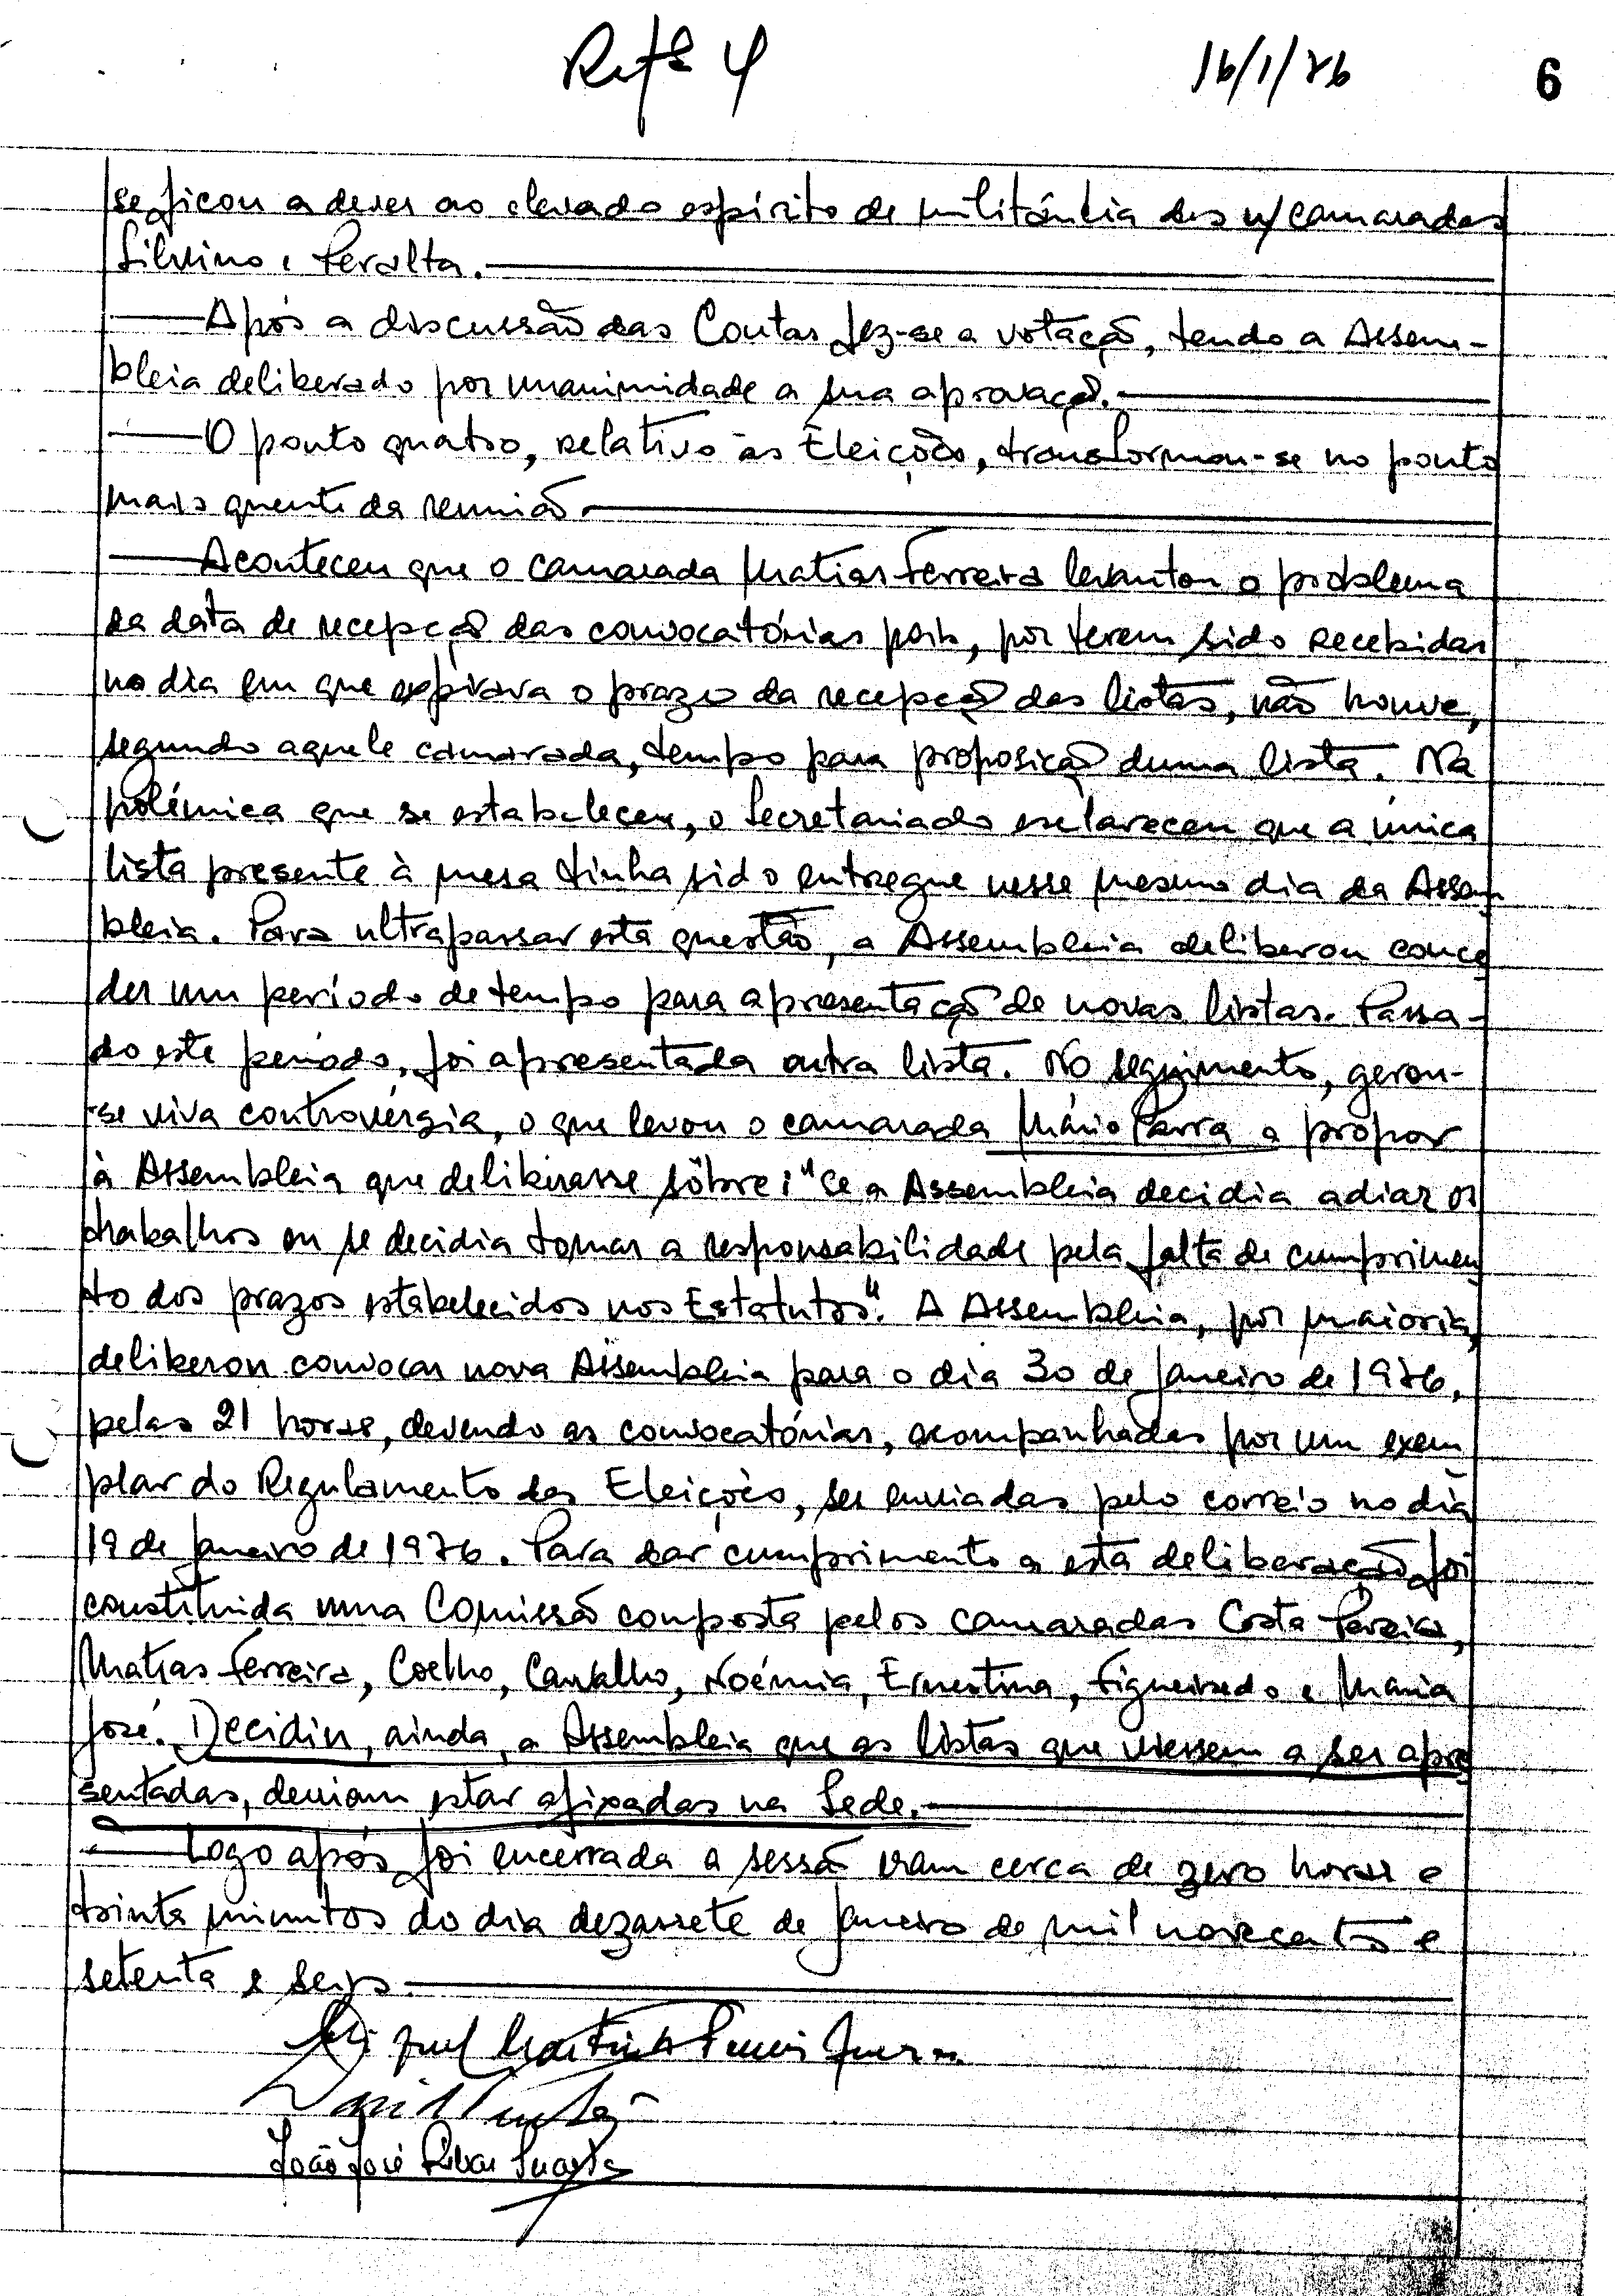 16/1/76
6
se ficou a dever ao elevado espírito de militância dos n/camaradas
Silvino e Peralta.
Após a discussão das Contas fez-se a votação, tendo a Assem-
bleia deliberado por unanimidade a sua aprovação.
O ponto quatro, relativo às Eleições, transformou-se no ponto
mais quente da reunião.
Aconteceu que o camarada Matias Ferreira levantou o problema
da data de recepção das convocatórias pois, por terem sido recebidas
no dia em que expirava o prazo da recepção das listas, não houve,
segundo aquele camarada, tempo para proposição duma lista. Na
polémica que se estabeleceu, o Secretariado esclareceu que a única
lista presente à mesa tinha sido entregue nesse mesmo dia da Assem
bleia. Para ultrapassar esta questão, a Assembleia deliberou conce
der um período de tempo para apresentação de novas listas. Passa-
do este período, foi apresentada outra lista. No seguimento, gerou-
-se viva controvérsia, o que levou o camarada Mário Parra a propor
à Assembleia que deliberasse sôbre: "se a Assembleia decidia adiar os
trabalhos ou se decidia tomar a responsabilidade pela falta de cumprimen
to dos prazos estabelecidos nos Estatutos". A Assembleia, por maioria,
deliberou convocar nova Assembleia para o dia 30 de Janeiro de 1976,
pelas 21 horas, devendo as convocatórias, acompanhadas por um exem
plar do Regulamento das Eleições, ser enviadas pelo correio no dia
19 de Janeiro de 1976. Para dar cumprimento a esta deliberação foi
constituida uma Comissão composta pelos camaradas Costa Pereira,
Matias Ferreira, Coelho, Carvalho, Noémia, Ernestina, Figueiredo e Maria
José. Decidiu, ainda, a Assembleia que as listas que viessem a ser apre
sentadas, deviam estar afixadas na Sede.
Logo após foi encerrada a sessão eram cerca de zero horas e
trinta minutos do dia dezassete de Janeiro de mil novecentos e
setenta e seis.
João José